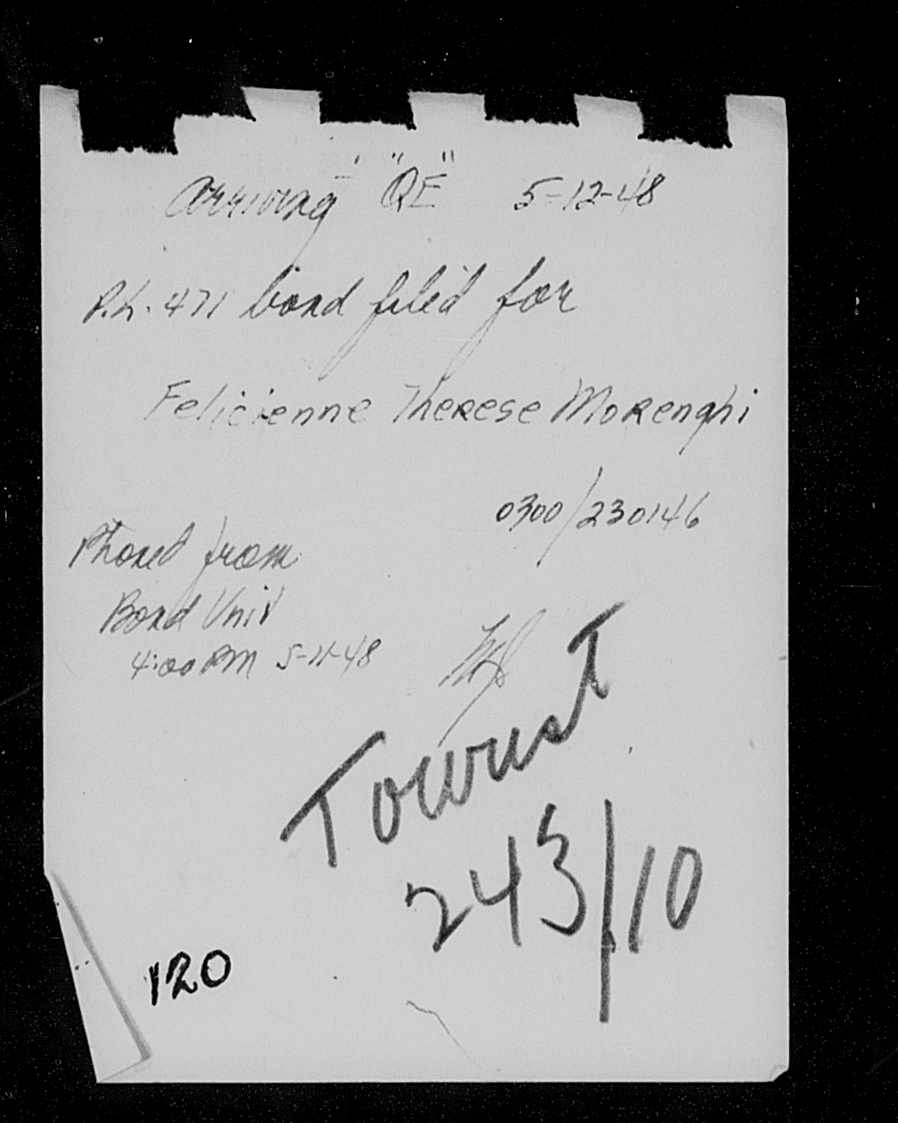 Arriving "QE" 5-12-48
P.L. 471 bond filed for
Felicienne Therese Morenghi
0300/230146
Phoned from
Bond Unit
4:00 PM 5-11-48
Tourist
243/10
120